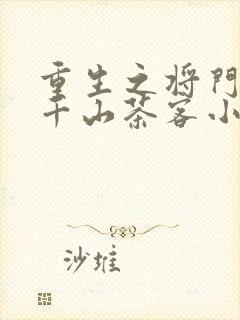 重生之将门
千山茶客小
沙堆